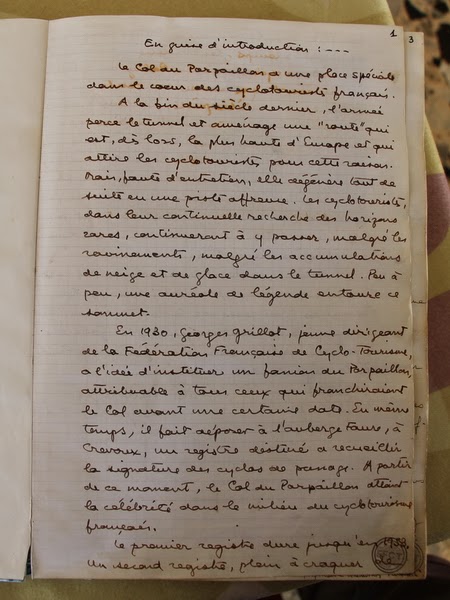 1
3
En guise d'introduction : ----
Le Col du Parpaillon a une place spéciale
dans le coeur des cyclotouristes français.
A la fin du siècle dernier, l'armée
perce le tunnel et aménage une "route" qui
est, dès lors, la plus haute d'Europe et qui
attire les cyclotouristes pour cette raison.
Mais, faute d'entretien, elle dégénère tout de
suite en une piste affreuse. Les cyclotouristes,
dans leur continuelle recherche des horizons
rares, continueront à y passer, malgré les
ravinements, malgré les accumulations
de neige et de glace dans le tunnel. Peu à
peu, une auréole de légende entoure ce
sommet.
En 1930, Georges Grillot, jeune dirigeant
de la Fédération Française de Cyclo-Tourisme,
a l'idée d'instituer un fanion du Parpaillon,
attribuable à tous ceux qui franchiraient
le Col avant une certaine date. En même
temps, il fait déposer à l'auberge Faure, à
Crevoux, un registre destiné à recueillir
la signature des cyclos de passage. A partir
de ce moment, le Col du Parpaillon atteint
la célébrité dans le milieu du cyclotourisme
français.
Le premier registre dure jusqu'en
Un second registre, plein à craquer